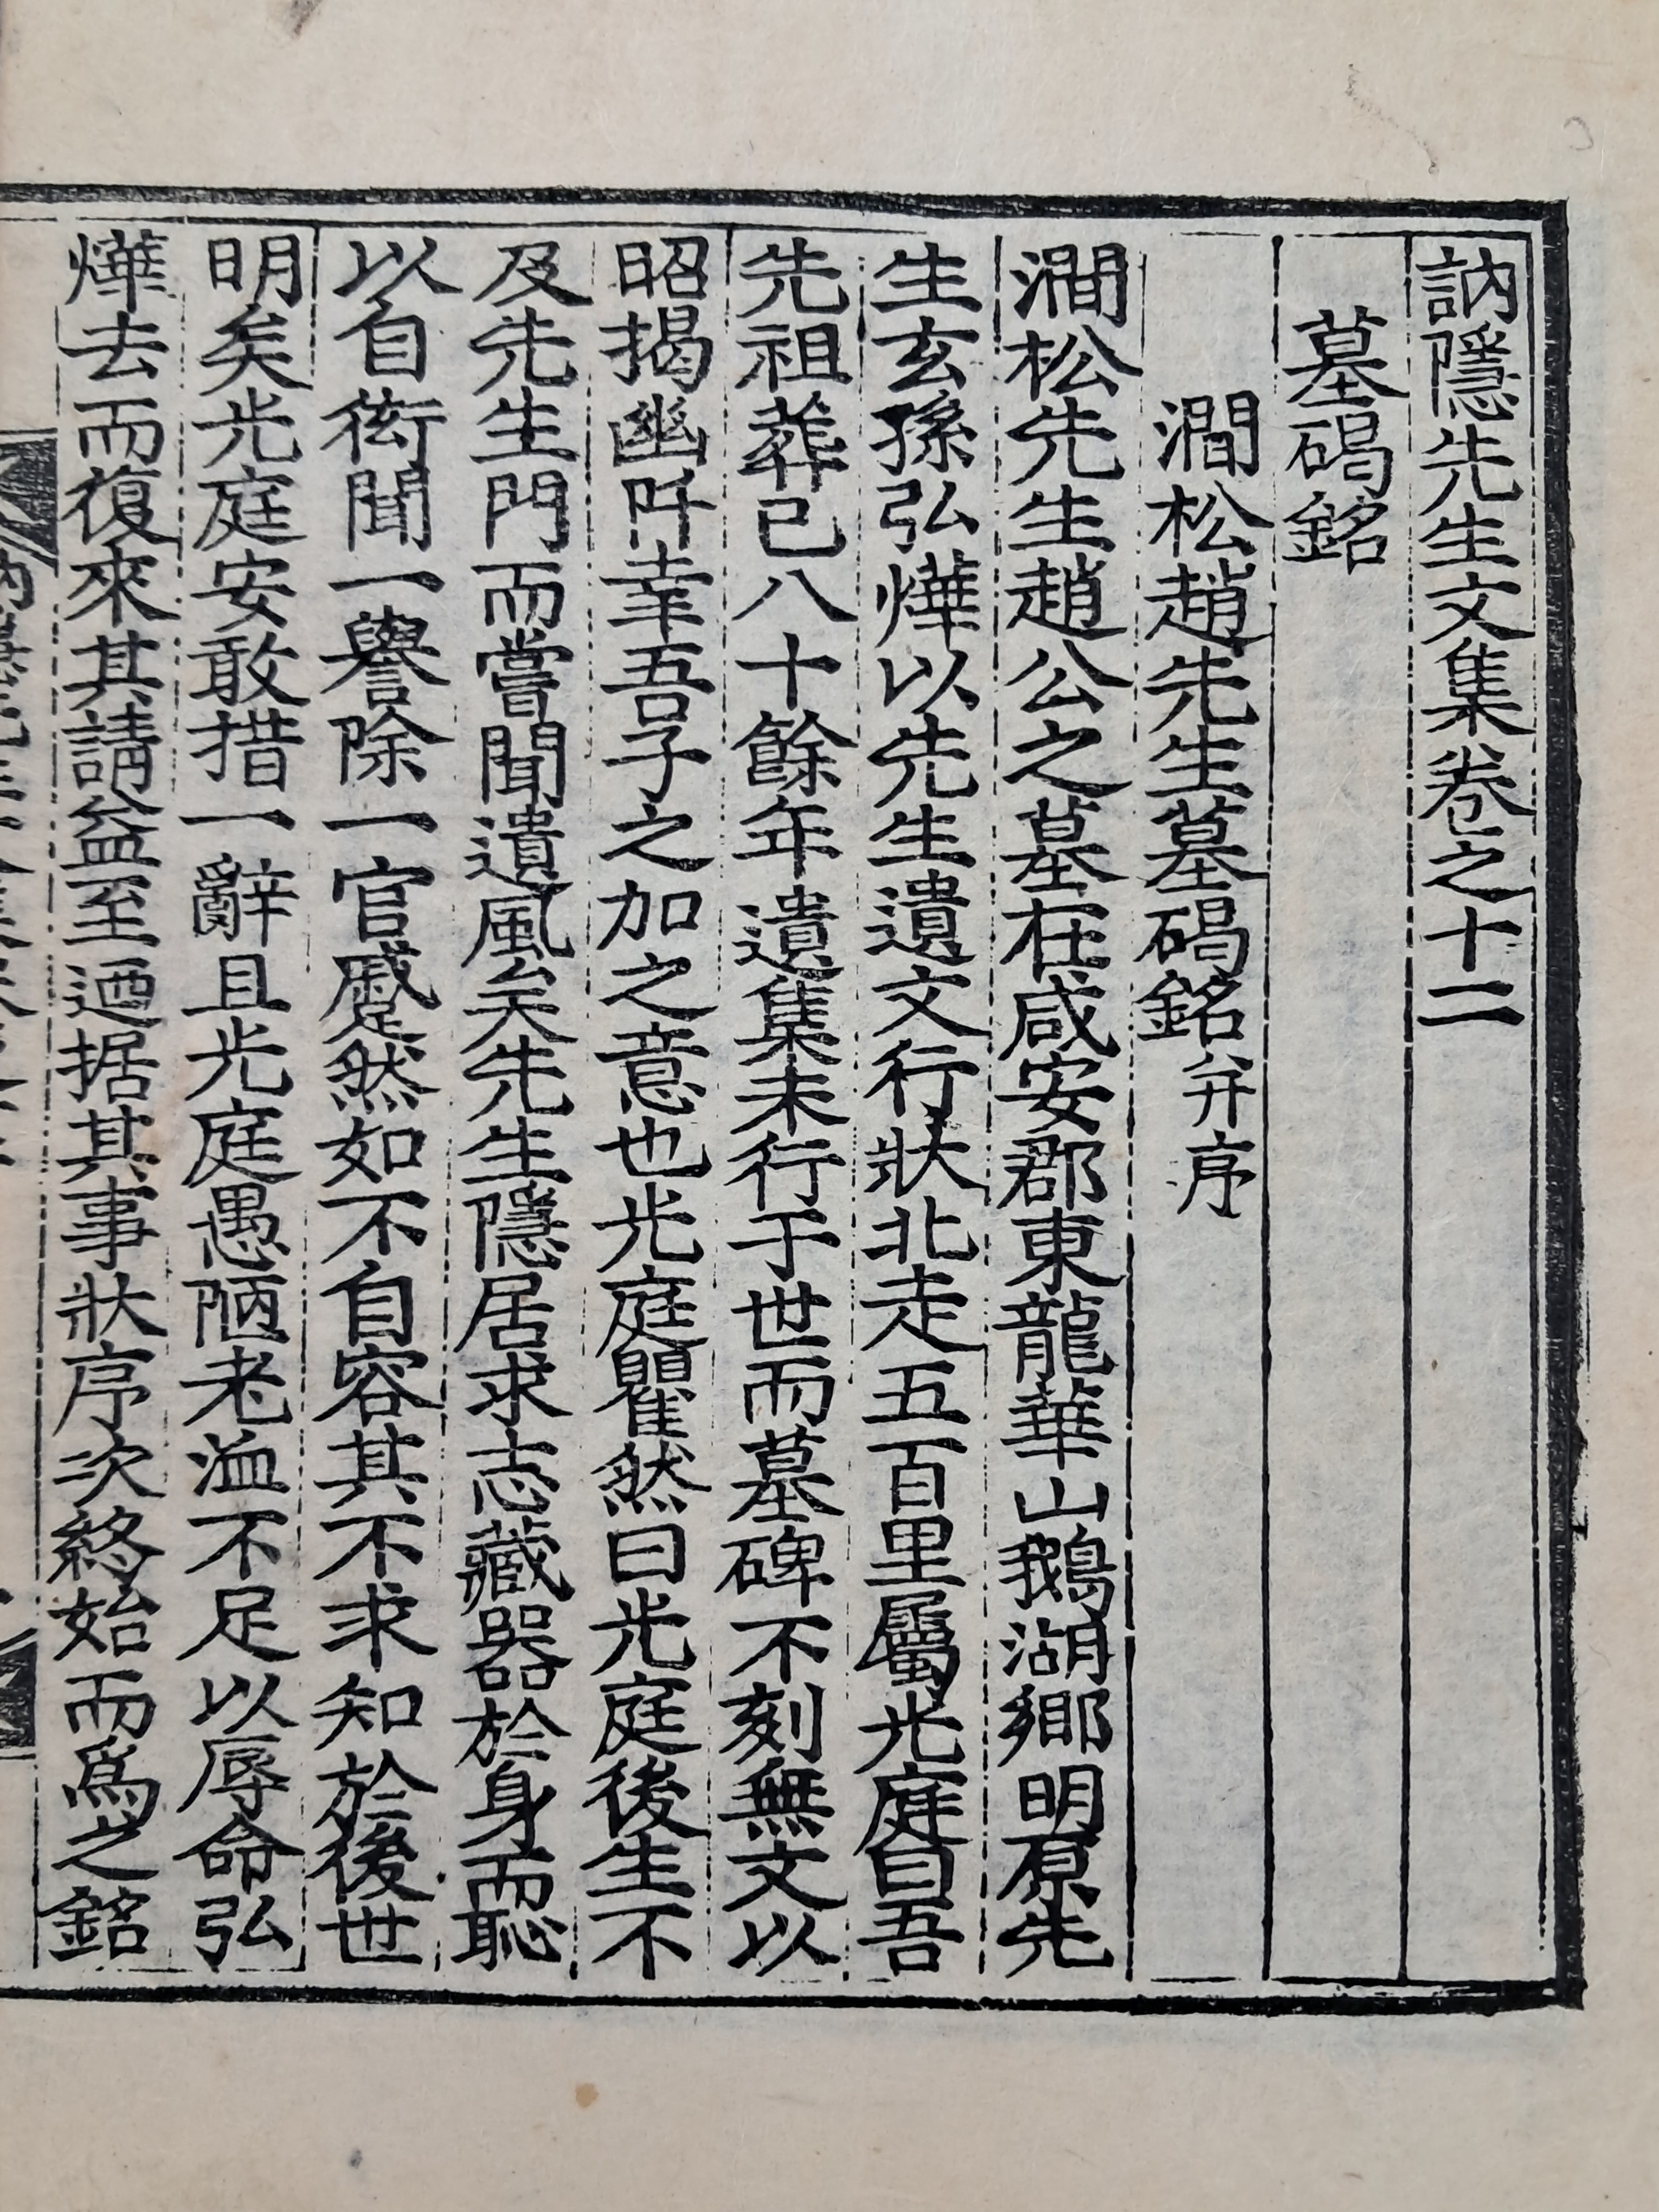 訥隱先生文集卷之十二
墓碣銘
澗松趙先生墓碣銘 并序
澗松先生趙公之墓在咸安郡東龍華山鵝湖鄉明原先
生玄孫弘燁以先生遺文行狀北走五百里屬光庭曰吾
先祖葬已八十餘年遺集未行于世而墓碑不刻無文以
昭揭幽阡幸吾子之加之意也光庭瞿然曰光庭後生不
及先生門而嘗聞遺風矣先生隱居求志藏器於身而恥
以自衒聞一譽除一官蹙然如不自容其不求知於後世
明矣光庭安敢措一辭且光庭愚陋老洫不足以辱命弘
燁去而復來其請益至迺据其事狀序次終始而爲之銘